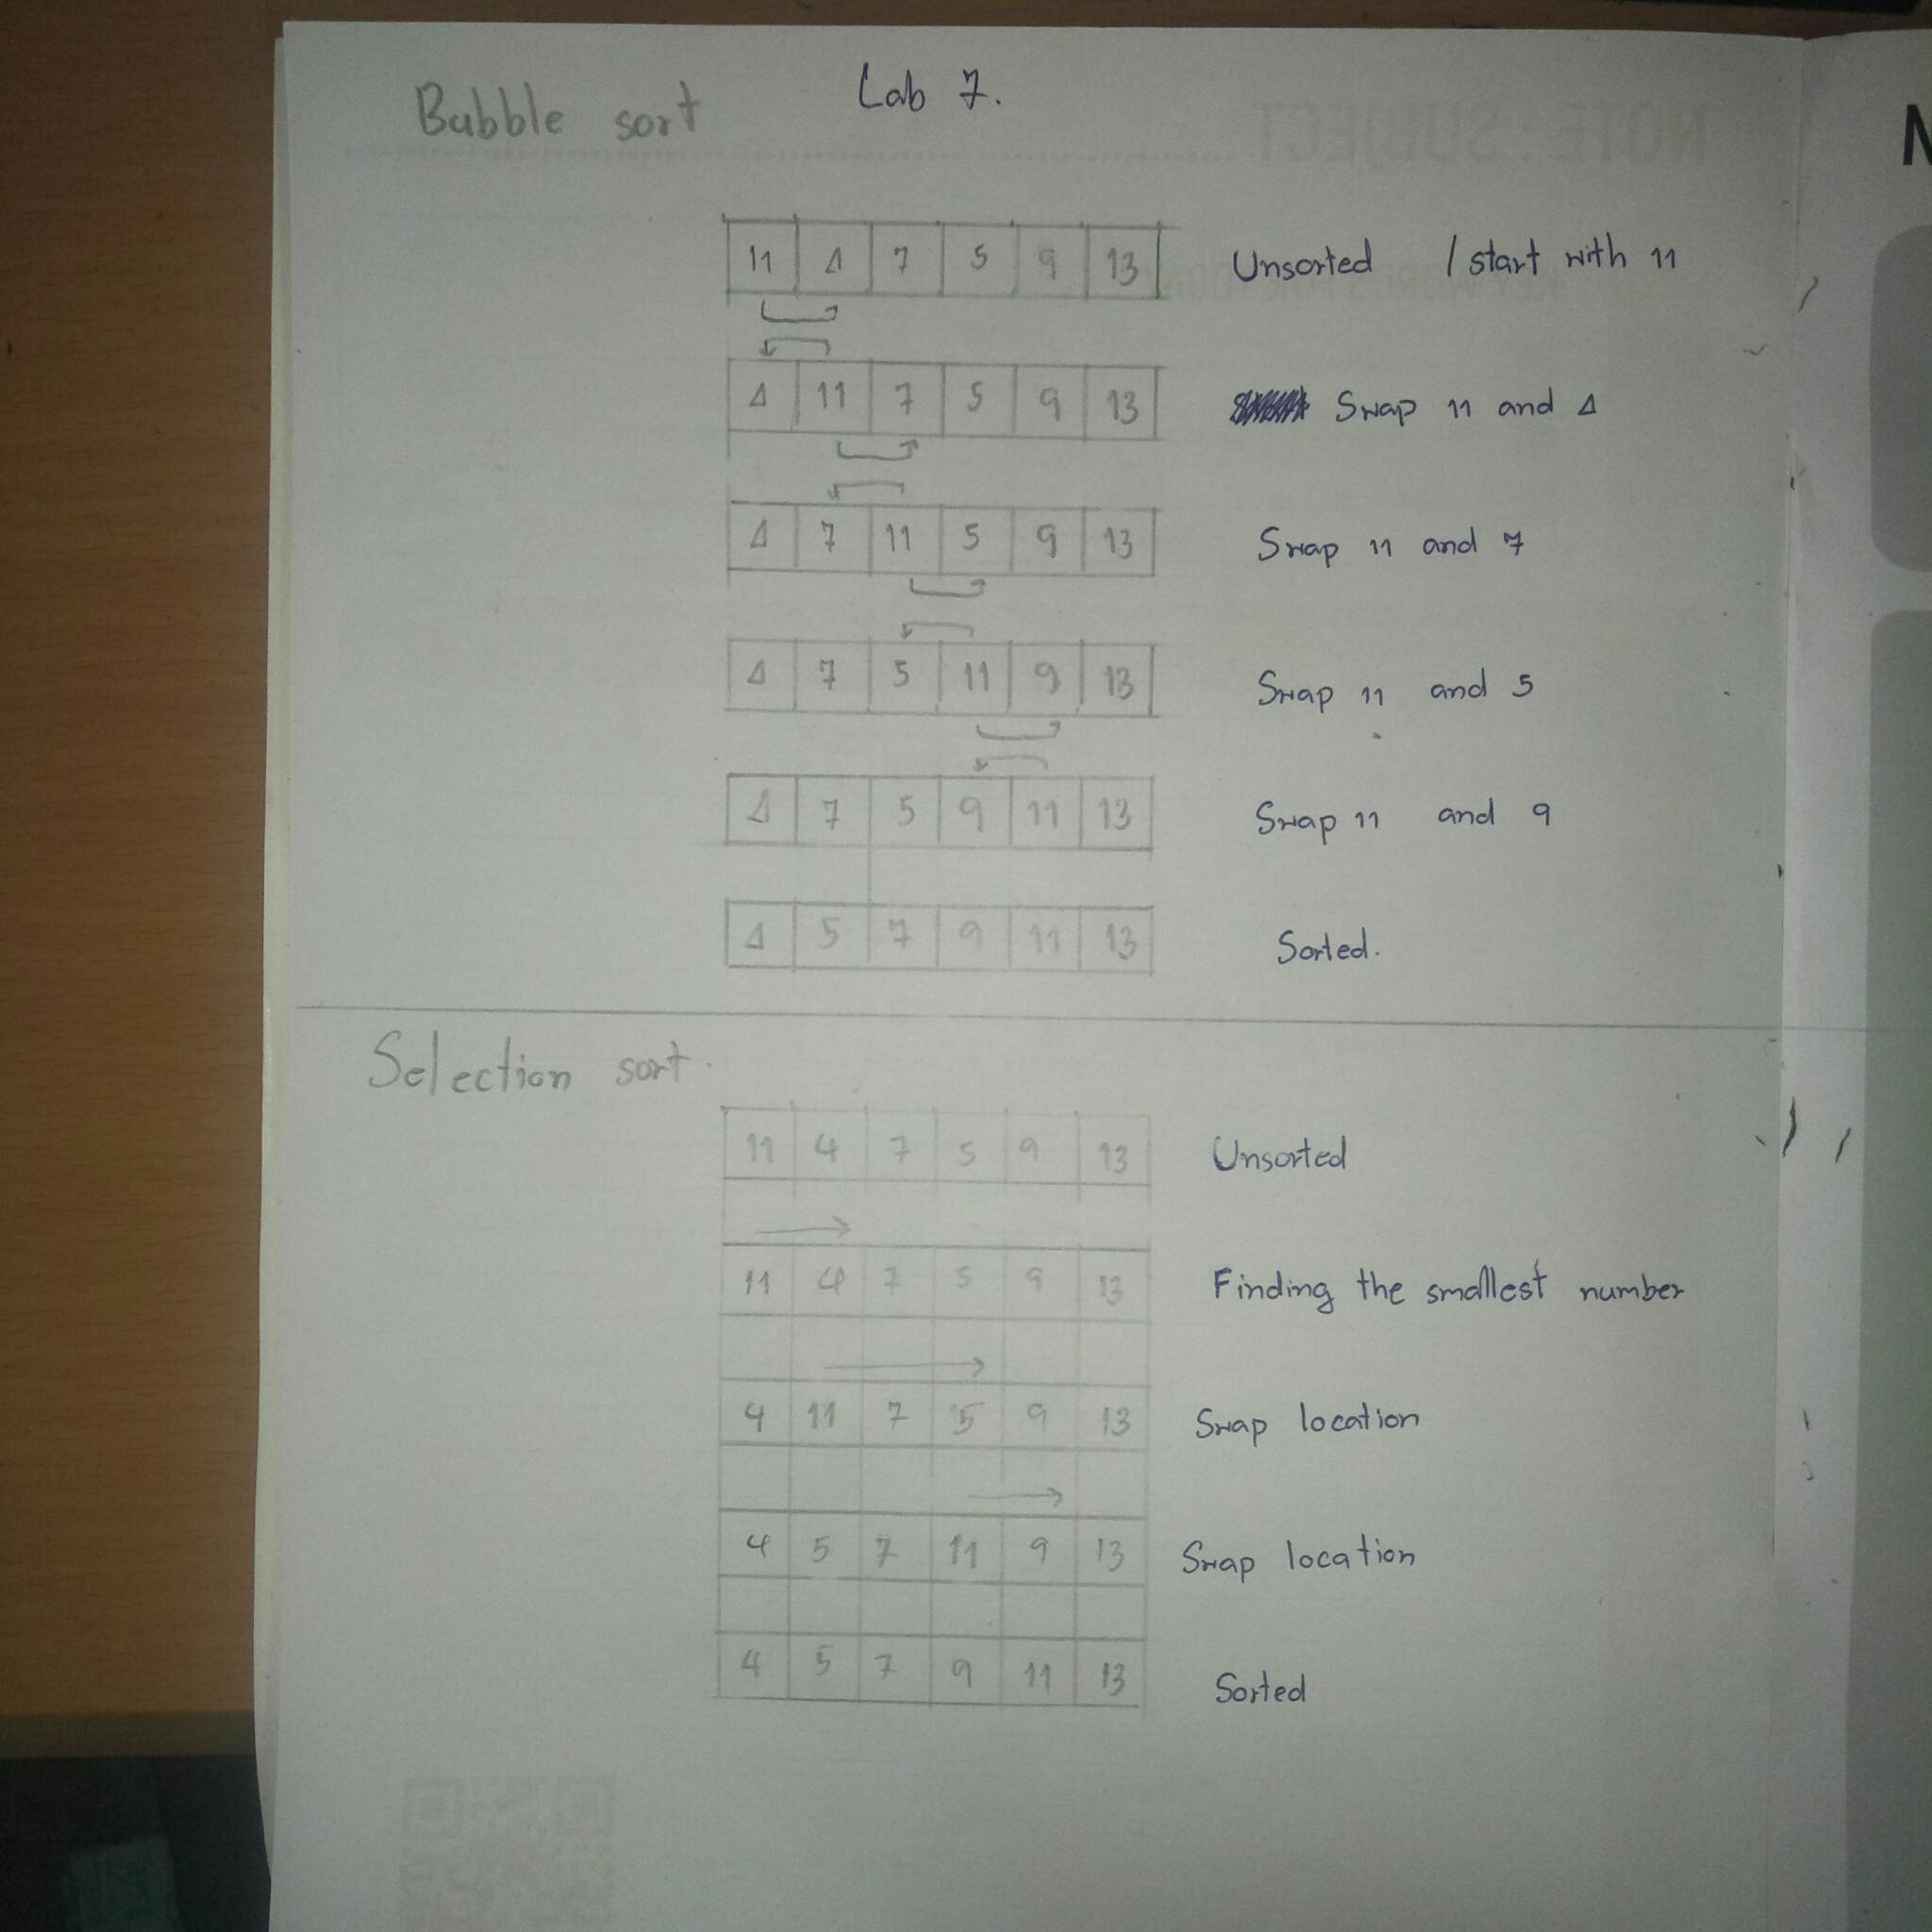 Lab 7.
Bubble sort
NOTE : SUBJECT
11 4 7 5 9 13 Unsorted / start with 11
4 11 7 5 9 13 Swap 11 and 4
4 7 11 5 9 13 Swap 11 and 7
4 7 5 11 9 13 Swap 11 and 5
4 7 5 9 11 13 Swap 11 and 9
4 5 7 9 11 13 Sorted.
Selection sort.
11 4 7 5 9 13 Unsorted
11 4 7 5 9 13 Finding the smallest number
4 11 7 5 9 13 Swap location
4 5 7 11 9 13 Swap location
4 5 7 9 11 13 Sorted